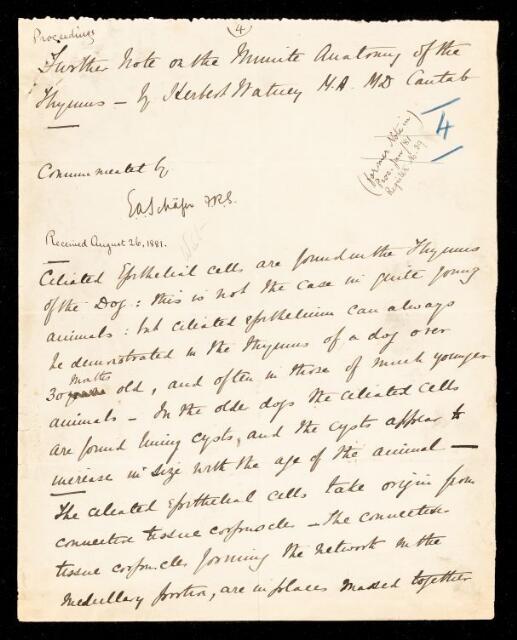 Proceedings
(4)
Further Note on the Minute Anatomy of the
Thymus — by Herbert Watney M.A. M.D Cantab
4
(former Note in
Proc. Jan/81
Communicated by
EASchäfer F.R.S.
Received August 26, 1881.
Ciliated Epithelial cells are found in the Thymus
of the Dog: this is not the case in quite young
animals: but ciliated epithelium can always
be demonstrated in the thymus of a dog over
months
30 old, and often in those of much younger
animals — In the older dogs the ciliated cells
are found lining cysts, and the cysts appear to
increase in size with the age of the animal —
The ciliated Epithelial cells take origin from
connective tissue corpuscles — The connective
tissue corpuscles forming the network in the
medullary portion, are in places massed together